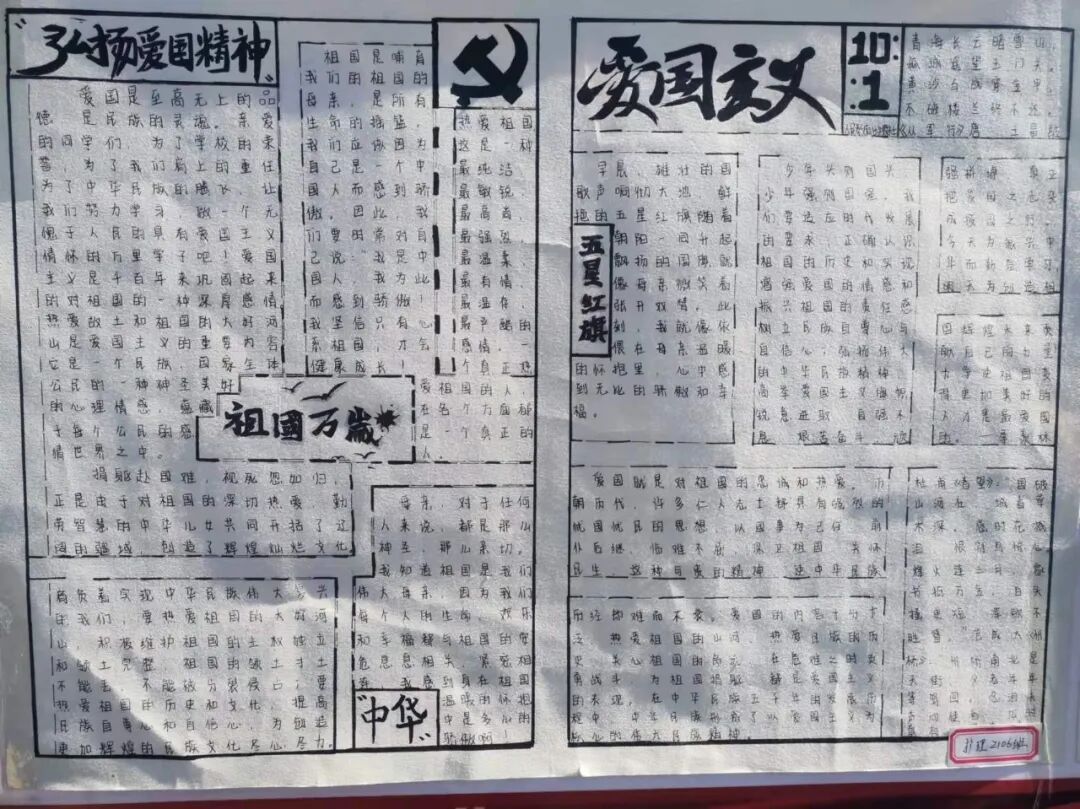 “弘扬爱国精神”
爱国是至高无上的品
德 是民族的灵魂。亲爱
的同学们，为了学校的荣
誉，为了我们肩上的重任
为了中华民族的腾飞，让
我们努力学习，做一个无
愧于人民的具有爱国主义
情怀的万里学子吧！爱国
主义是千百年来巩固起来
的对祖国的一种深厚感情
热爱故土和祖国的大好河
山是爱国主义的重要内容
它是一个民族 国家全体
公民的一种神圣美好
的心理情感，蕴藏
于每个公民的感
情世界之中。
捐躯赴国难，视死忽如归，
正是由于对祖国的深切热爱 勤
劳智慧的中华儿女共同开拓了辽
阔的疆域 创造了辉煌灿烂文化
肩负着实现中华民族伟大复兴
的我们，要热爱祖国的大好河
山，积极维护祖国的主权独立
和领土完整 祖国的领土寸土
不能丢 不能被分裂侵占了要
热爱祖国的历史和文化，提高
民族自尊心和自信心，为创造
更加辉煌的民族文化尽心尽力.
祖国是哺育
我们的祖国的
母亲，是所有
生命的摇篮，
我们应做因为
自己是一个中
国人而感到骄
傲。因此，我
们要的常对自
己说“我是中
国人 我为此
而感到骄傲！
我坚信只有心
系祖国，才会
健康成长
祖國万歲
热爱祖国
这是一种
最纯洁
最敏锐
最高尚，
最强烈，
最温柔
最有情，
最温存，
最严酷的
感情，一
个真正热
爱祖国的人
在各个方面都
是一个真正的
人。
母亲，对于任何
人来说，都是那么
神圣，那么亲切。
我知道祖国是我们
伟大母亲，因为我们
每个人的生命 欢乐
和幸福都与祖国的安
危息息相关 紧密相
我感到自在祖国
温暖的怀抱
中是多么的
骄傲啊！
“中华”
爱国主义
10:
:1
青海长云暗雪山，
孤城遥望玉门关。
黄沙百战穿金甲，
不破楼兰终不还。
早晨，雄壮的国
歌声响彻大地，鲜
艳的五星红旗随着
朝阳一同升起
飘扬的国旗就
像母亲微笑着
张开双臂。此
刻，我就像依
偎在母亲温暖
的怀抱里，心中感
到无比的骄傲和幸
福。
五星红旗
少年兴则国兴
少年强则国强，我
们要适应时代发展
的要求，正确认识
祖国的历史和实现
增强爱国的情感和
振兴祖国的责任感
树立民族自尊心与
自信心；弘扬伟大
的中华民族精神，
高举爱国主义旗帜
锐意进取 自强不
息 艰苦奋斗
真正
把爱国之志变
成报国之行。
今天为振兴中
华而勤奋学习，
明天为创造祖
国辉煌未来贡
献自己的力量
爱国就是对祖国的忠诚和热爱。历
朝历代，许多仁人志士都具有强烈的
忧国忧民的思想，以国事为己任 前
仆后继，临难不屈，保卫祖国 关怀
民生 这种可贵的精神 使中华民族
历经劫难而不衰。爱国的内容十分广
泛，热爱祖国的山河 热爱民族的历
史 关心祖国的命运 在危难之时英
勇战斗 为祖国捐躯 都是爱国主义
的表现，在中华民族五千年的发展历
程中 中华民族形成了以爱国主义为
核心的伟大民族精神。
杜甫《春望》“国破
山河在 城春草
木深。感时花溅
泪 恨别鸟惊心
烽火连三月，家
书抵万金。白头
搔更短 浑欲不
胜簪。”
护理2106班